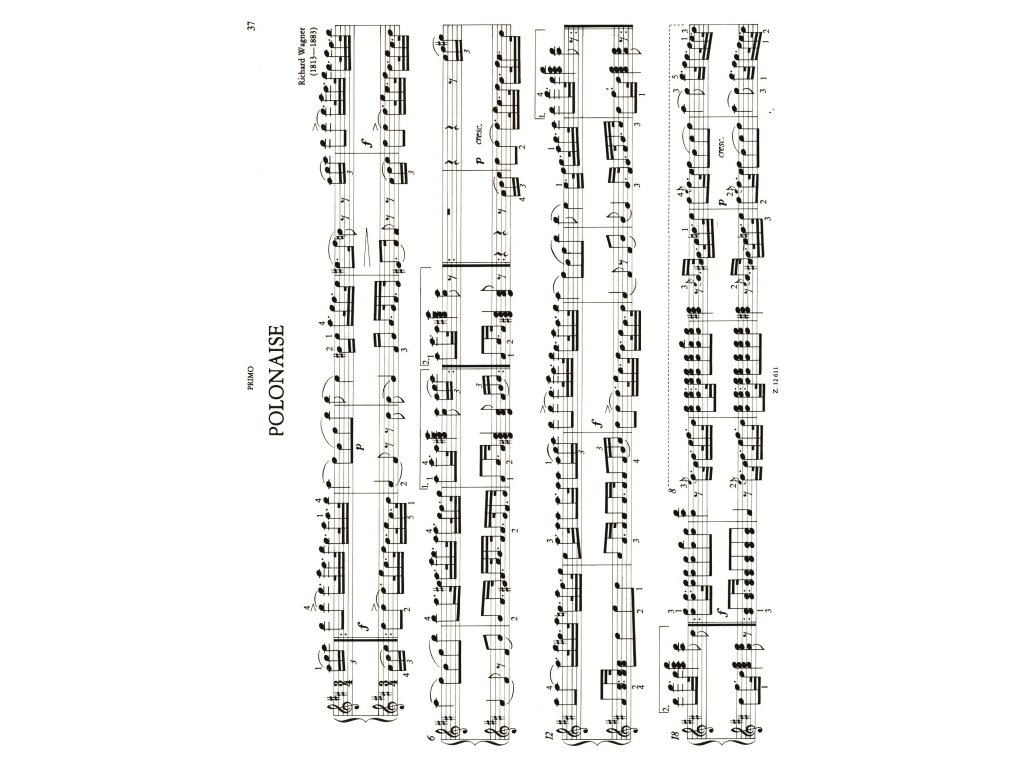 PRIMO
37
POLONAISE
Richard Wagner
(1813—1883)
3
4
f
p
f
6
1.
2.
p cresc.
12
f
1.
18
2.
f
8
p
cresc.
Z. 12 611